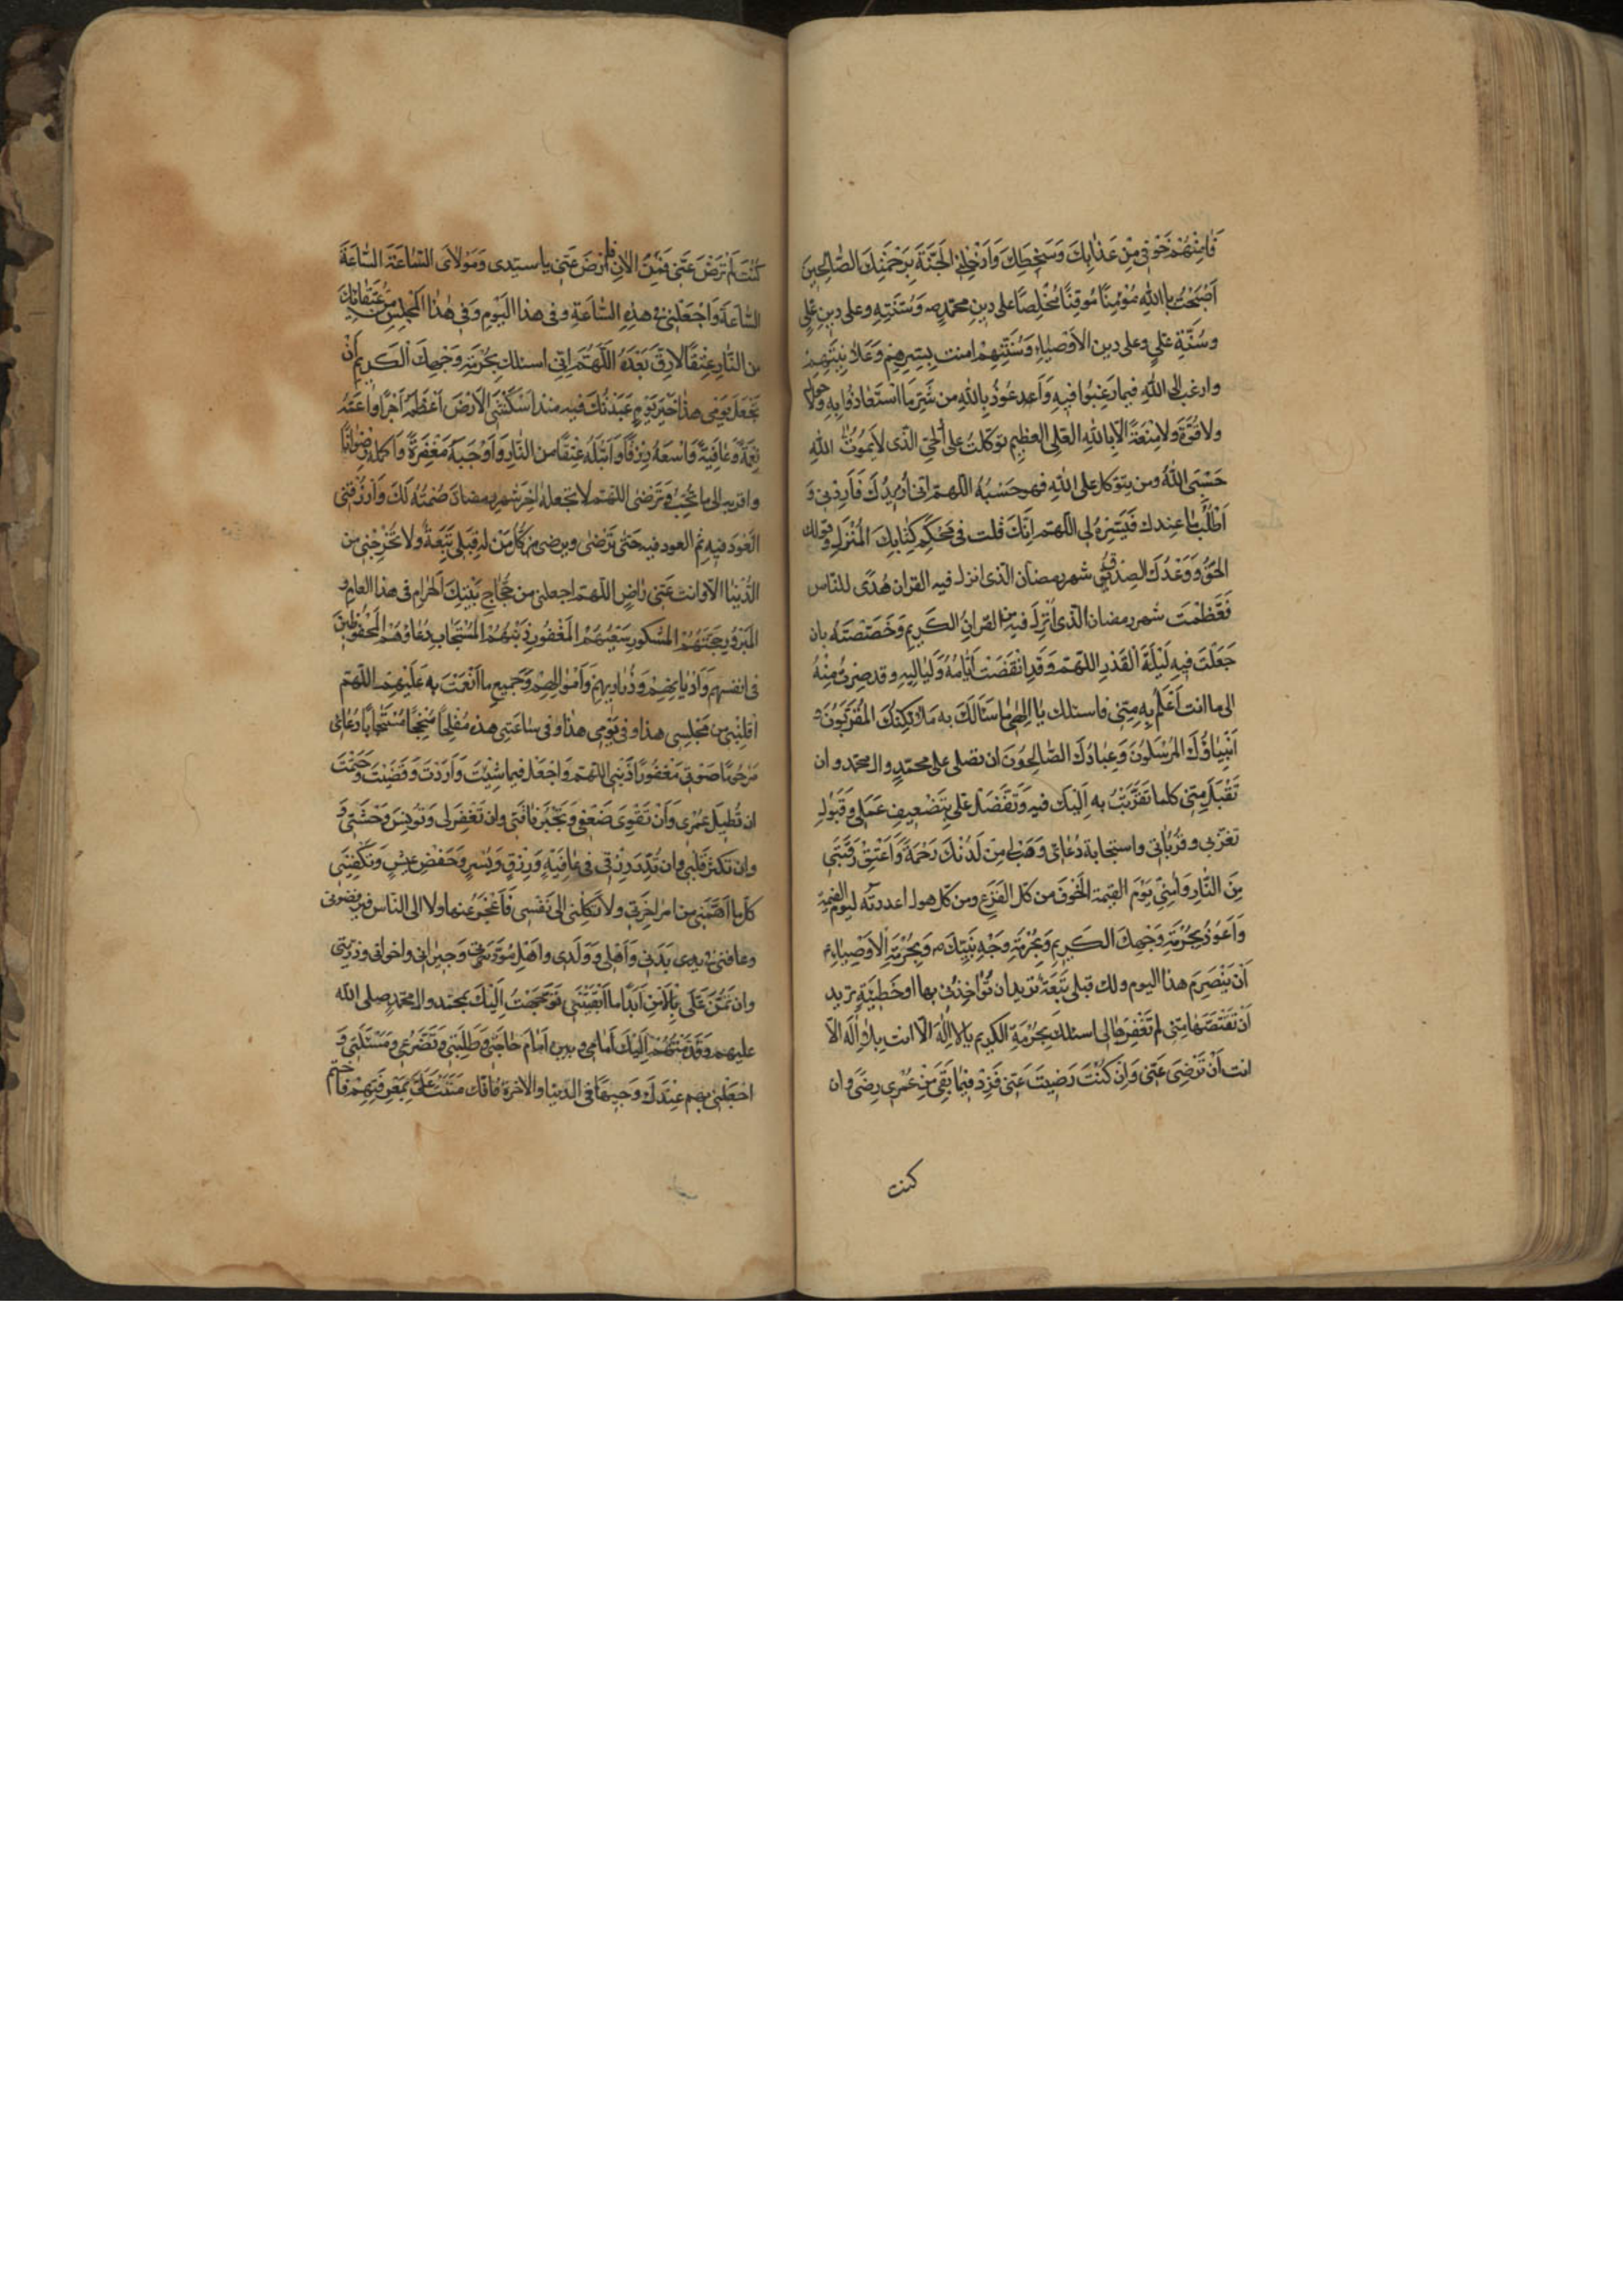 فَامِنْهُمْ خَوْفى مِنْ عَذابِكَ وَسَخَطِكَ وَاَدْخِلْنِى الجَنَّةَ بِرَحْمَتِكَ الصّالِحينَ
اَصْبَحْتُ بِاللهِ مُؤْمِنًا مُوقِنًا مُخْلِصًا على دينِ محمّدٍ ص وَسُنَّتِهِ وعلى دينِ عَلِىٍّ
وسُنَّةِ عَلِىٍ وعلى دين الاَوْصياءِ وَسُنَّتِهِمْ امنت بِسِرِهِمْ وَعَلانِيَتِهِمْ
وارغب الى اللهِ فيما رَغِبُوا فيهِ وَاَعوذُ بِاللهِ من شَرِّ مَا اسْتَعاذُوا بِهِ وَلا حول
ولا قُوَّةَ ولا مِنْعَةَ الاّ باللهِ العَلِى العظيمِ توكّلتُ على الحَىِّ الّذى لا يَمُوتُ اللهِ
حَسْبِىَ اللهُ ومن يتوكل على اللهِ فهو حَسْبُهُ اللّهمّ انّى اُريدُكَ فَاَرِدْنى وَ
اَطْلُبُ ما عِندك فَيَسِّرْهُ لى اللّهمّ اِنَّكَ قُلت فى مُحْكَمِ كِتابِكَ المُنْزَلِ وقولك
الحَقُّ وَوَعْدُكَ الصِدْقُ شهر رمضان الّذى انزل فيه القران هُدًى للنّاس
فَعَظَّمْتَ شهر رمضان الّذى اُنْزِلَ فيهِ القرانُ الكَريمِ وَخَصَصْتَهُ بان
جَعَلْتَ فيهِ لَيْلَةَ القَدْرِ اللّهمّ وَقَدِ انْقَضَتْ اَيّامُهُ وَلَياليهِ وقد صِرْتُ مِنْهُ
الى ما انت اَعْلَمُ بِهِ مِنّى فاسئلك يا اِلهى ما سَاَلَكَ به مَلائِكَتُكَ المُقَرَّبُونَ و
اَنْبِياؤُكَ المُرْسَلُونَ وَعِبادُكَ الصّالِحُونَ ان تصلى على محمّدٍ وال محمّد و ان
تَقْبَلَ مِنّى كلما تَقَرَّبْتُ بهِ اِلَيْكَ فيهِ وَتَفَضَّلَ عَلَىَّ بِتَضْعيفِ عَمَلى وَقَبُولِ
تقرّبى وقُرُباتى واستجابةِ دُعائى وَهَبْ لى مِنْ لَدُنْكَ رَحْمَةً وَاَعْتِقْ رَقَبَتى
مِنَ النّارِ وَامِنّى يَوْمَ القيمة الخَوْفَ من كلّ الفَزَعِ ومن كلّ هول اعددته ليوم القيمة
وَاَعُوذُ بِحُرْمَةِ وَجْهِكَ الكَريمِ وَبِحُرْمَةِ وَجْهِ نَبِيِّكَ ص وَبِحُرْمَةِ الاَوْصِياءِ
اَنْ يَنْصَرِمَ هذا اليوم ولك قبلى تَبِعَةٌ تريد ان تُؤاخِذَنى بها او خَطيئَةٍ تريد
اَنْ تَقْتَصَّها مِنّى لم تَغْفِرْها لى اسئلك بِحُرْمَةِ الكَريم يا لا اِلهَ الاّ انت بلا اِله الاّ
انت اَنْ تَرْضى عَنّى وَاِنْ كُنْتَ رَضيتَ عَنّى فَزِدْ فيما بَقِىَ مِنْ عُمْرى رِضًى وان
كنت
كُنْتَ لَمْ تَرْضَ عَنّى فَمِنَ الان فارْضَ عَنّى يا سيّدى وَمَوْلاىَ السّاعَةَ السّاعَةَ
السّاعَةَ وَاجْعَلْنى فى هذِهِ السّاعَةِ وفى هذا اليَوْمِ وَفى هذا المَجْلِسِ من عُتَقائِكَ
من النّار عِتْقًا لا رِقَّ بَعْدَهُ اللّهُمَّ اِنّى اسئلك بِحُرْمَةِ وَجْهِكَ الكَريمِ اَنْ
تَجْعَلَ يَوْمى هذا خَيْرَ يَوْمٍ عَبَدْتُكَ فيه منذ اَسْكَنْتَنى الاَرْضَ اَعْظَمَهُ اَجْرًا واَعَمَّهُ
نِعْمَةً وَعافِيَةً وَاَوْسَعَهُ رِزْقًا وَاَبْتَلَهُ عِتْقًا من النّارِ وَاَوْجَبَهُ مَغْفِرَةً وَاَكمله رِضْوانًا
واقربه الى ما تُحِبُّ وَتَرْضى اللّهمّ لا تجعله اخِرَ شهرِ رمضانَ صُمْتُهُ لَكَ وَارْزُقْنى
العَوْدَ فيهِ ثم العود فيه حَتّى تَرْضى ويرضى كُلُّ مَنْ له قِبَلى تَبِعَةٌ ولا تُخْرِجْنى من
الدُّنْيا الاّ وانت عَنّى راضٍ اللّهمّ اجعلنى من حُجّاجِ بَيْتِكَ الحَرامِ فى هذا العامِ
المَبْرُورِ حَجُّهُمُ المَشْكورِ سَعْيُهُمْ المَغْفُورِ ذَنْبُهُمْ المُسْتَجابِ دُعاؤُهُمْ المَحْفُوظينَ
فى انفسهم وَاَدْيانِهِمْ وَذَراريهِمْ وَاَمْوالِهِمْ وَجَميعِ ما اَنْعَمْتَ به عَلَيْهِمْ اللّهمّ
اقْلِبْنى من مَجْلِسى هذا وفى يَوْمى هذا وفى ساعَتى هذه مُفْلِحًا مُنْجِحًا مُسْتَجابًا دُعائى
مَرْحُومًا صَوْتى مَغْفُورًا ذَنْبى اللّهمّ وَاجْعَلْ فيما شِئْتَ وَاَرَدْتَ وَقَضَيْتَ وَحَتَمْتَ
ان تُطيلَ عُمْرى وَاَنْ تُقَوِّىَ ضَعْفى وَتَجْبُرَ فاقَتى وان تَغْفِرَ لى وَتُونِسَ وَحْشَتى وَ
وان تكثر قلبى وان تُدِرَّ رِزْقى فى عافِيَةٍ وَرِزْقٍ وَيُسْرٍ وَخَفْضِ عَيْشٍ وَتَكْفِيَنى
كلّ ما اَهَمَّنى من امر اخِرَتى ولا تَكِلْنى الى نَفْسى فَاَعْجَزَ عَنها ولا الى النّاس فيرفضونى
وعافنى فى بَدَنى وَاَهْلى وَوَلَدى واهل مَوَدَّتى وَجيرانى واخوانى وذرّيتى
وان تَمُنَّ عَلَىَّ بِالاَمْنِ اَبَدًا ما اَبْقَيْتَنى تَوَجَّهْتُ اِلَيْكَ بمحمّد وال محمّدٍ صلى الله
عليهم وَقَدَّمْتُهُمْ اِلَيْكَ اَمامى وبين اَمام حاجَتى وَطَلِبَتى وَتَضَرُّعى وَمَسْئَلَتى وَ
اجْعَلْنى بهم عِنْدَكَ وَجيهًا فى الدّنيا والاخرة فانّك مَنَنْتَ عَلَىَّ بِمَعْرِفَتِهِمْ فاختم